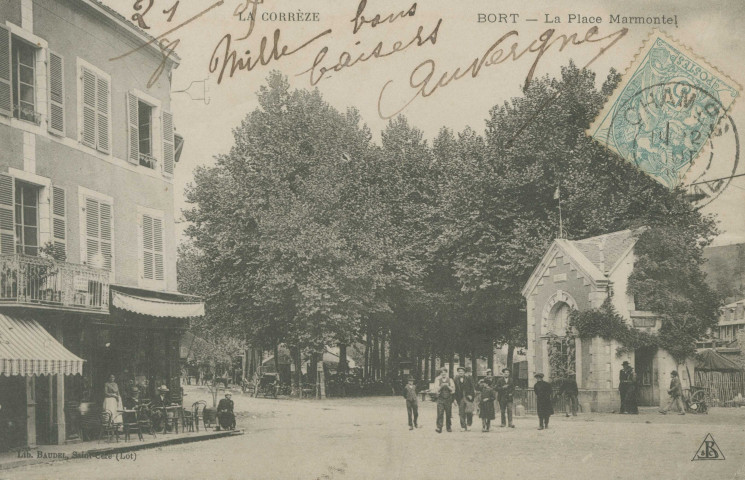 LA CORRÈZE
BORT — La Place Marmontel
21
8
Mille bons
baisers
Auvergne
POSTES
CHAM
Lib. BAUDEL, Saint-Céré (Lot)
B